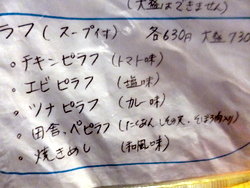 (大盛はできません)
ラフ(スープ付) 各630円 大盛730
・チキンピラフ(トマト味)
・エビピラフ(塩味)
・ツナピラフ(カレー味)
・田舎ぺピラフ(にんにく しその
・焼きめし(和風味)